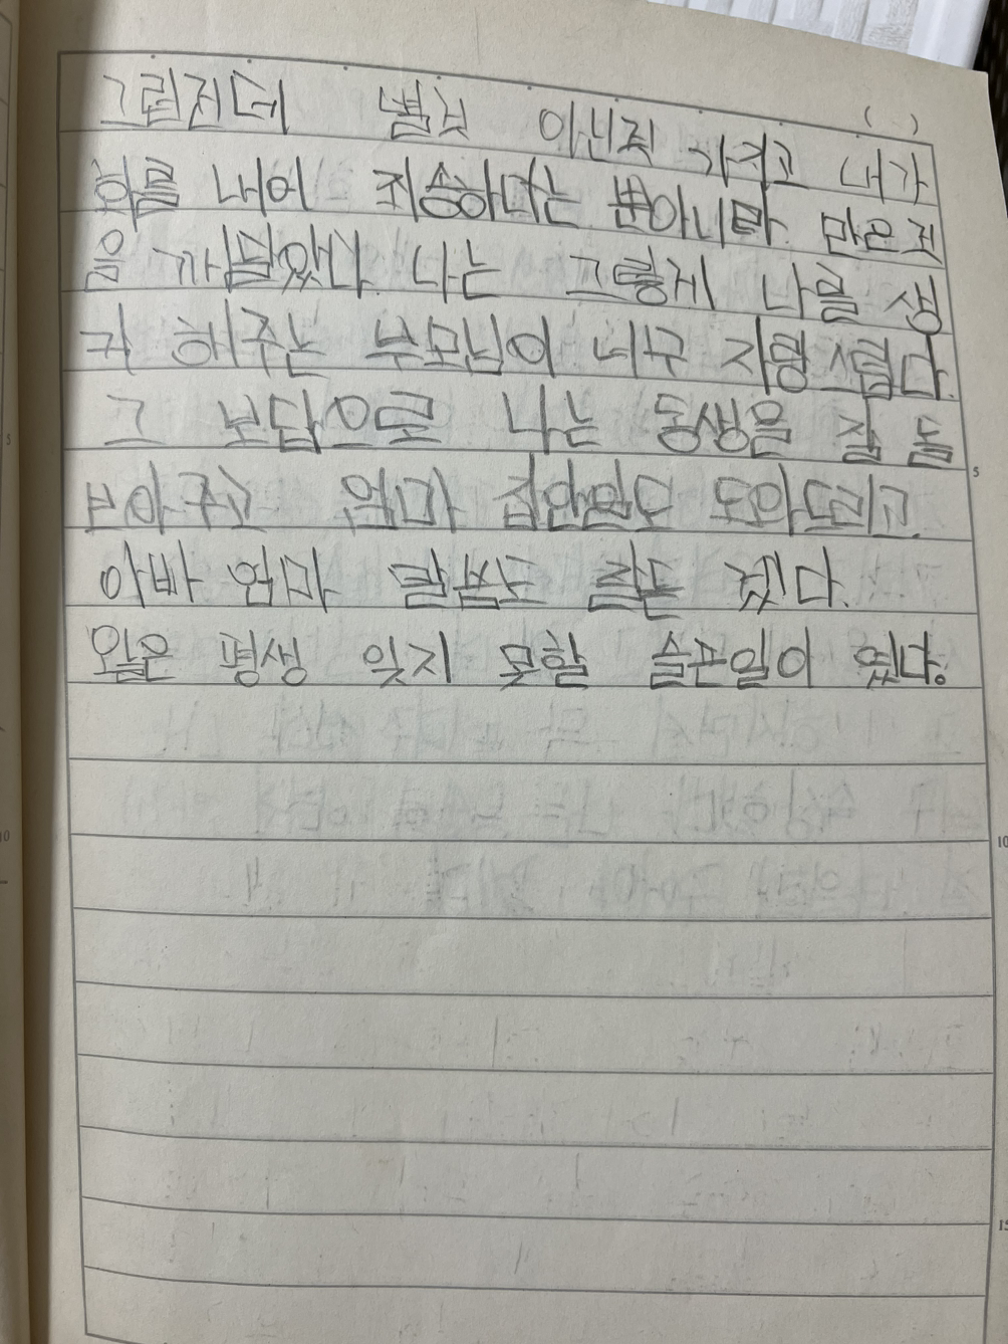 그럴전데 별것 아닌것 가지고 내가
화를 내어 죄송하다는 뿐아니라 많은것
을 깨달았다 나는 그렇게 나를 생
각 해주는 부모님이 너무 자랑스럽다.
그 보답으로 나는 동생을 잘 돌
보아주고 엄마 집안일도 도와드리고
아빠 엄마 말씀도 잘듣겠다.
오늘은 평생 잊지 못할 슬픈일이 였다.
5
10
15